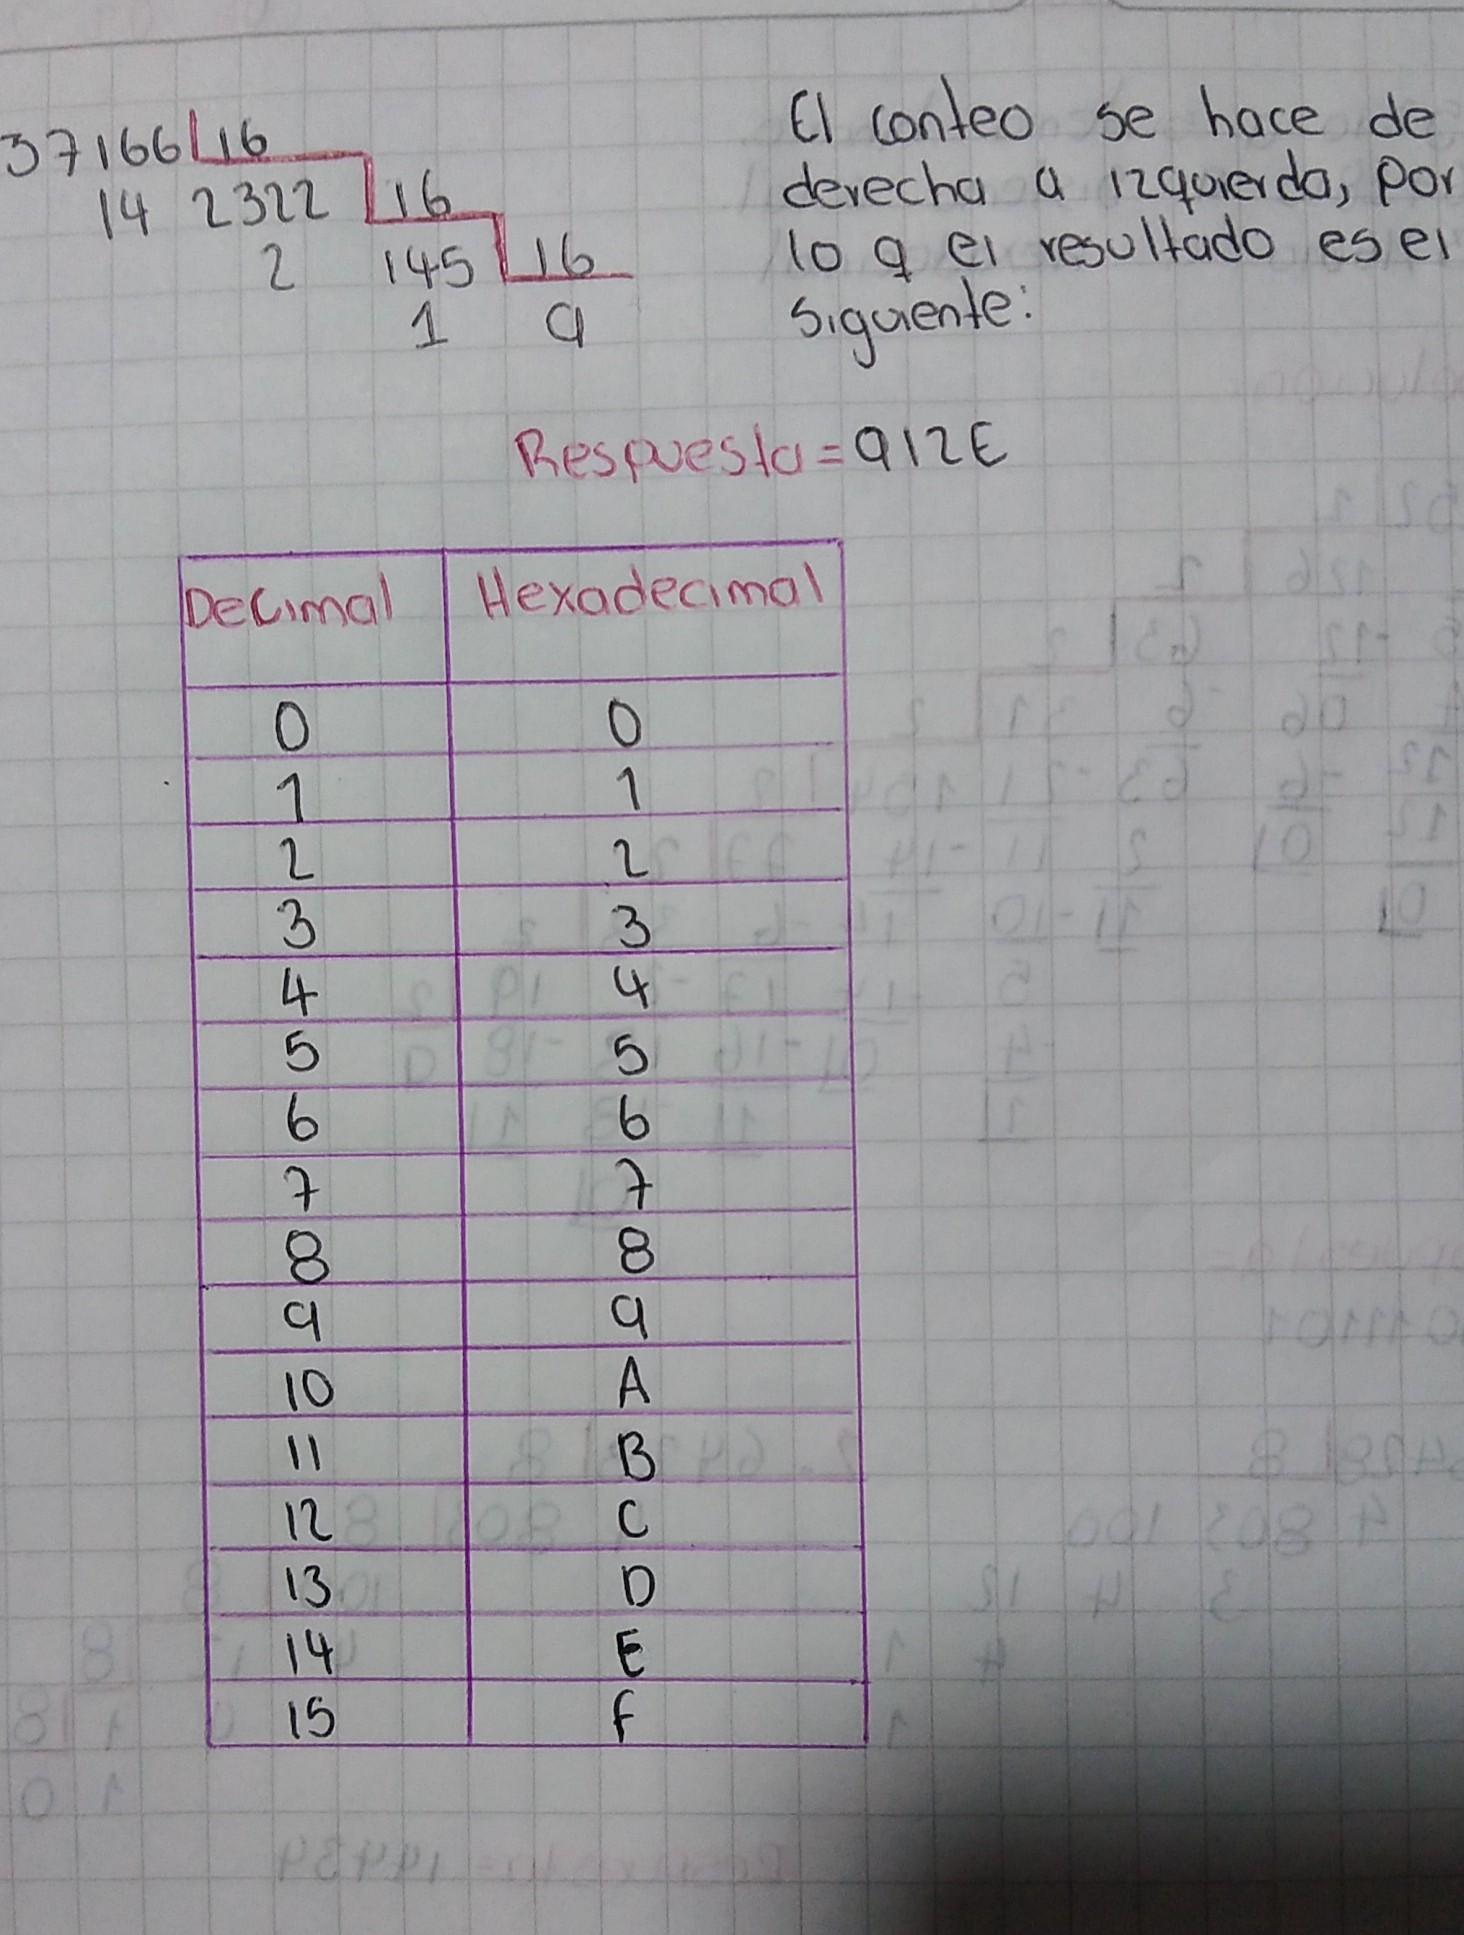 37166 16
14 2322 16
2 145 16
1 9
El conteo se hace de
derecha a izquierda, por
lo q el resultado es el
siguiente:
Respuesta = 912E
Decimal Hexadecimal
0 0
1 1
2 2
3 3
4 4
5 5
6 6
7 7
8 8
9 9
10 A
11 B
12 C
13 D
14 E
15 F